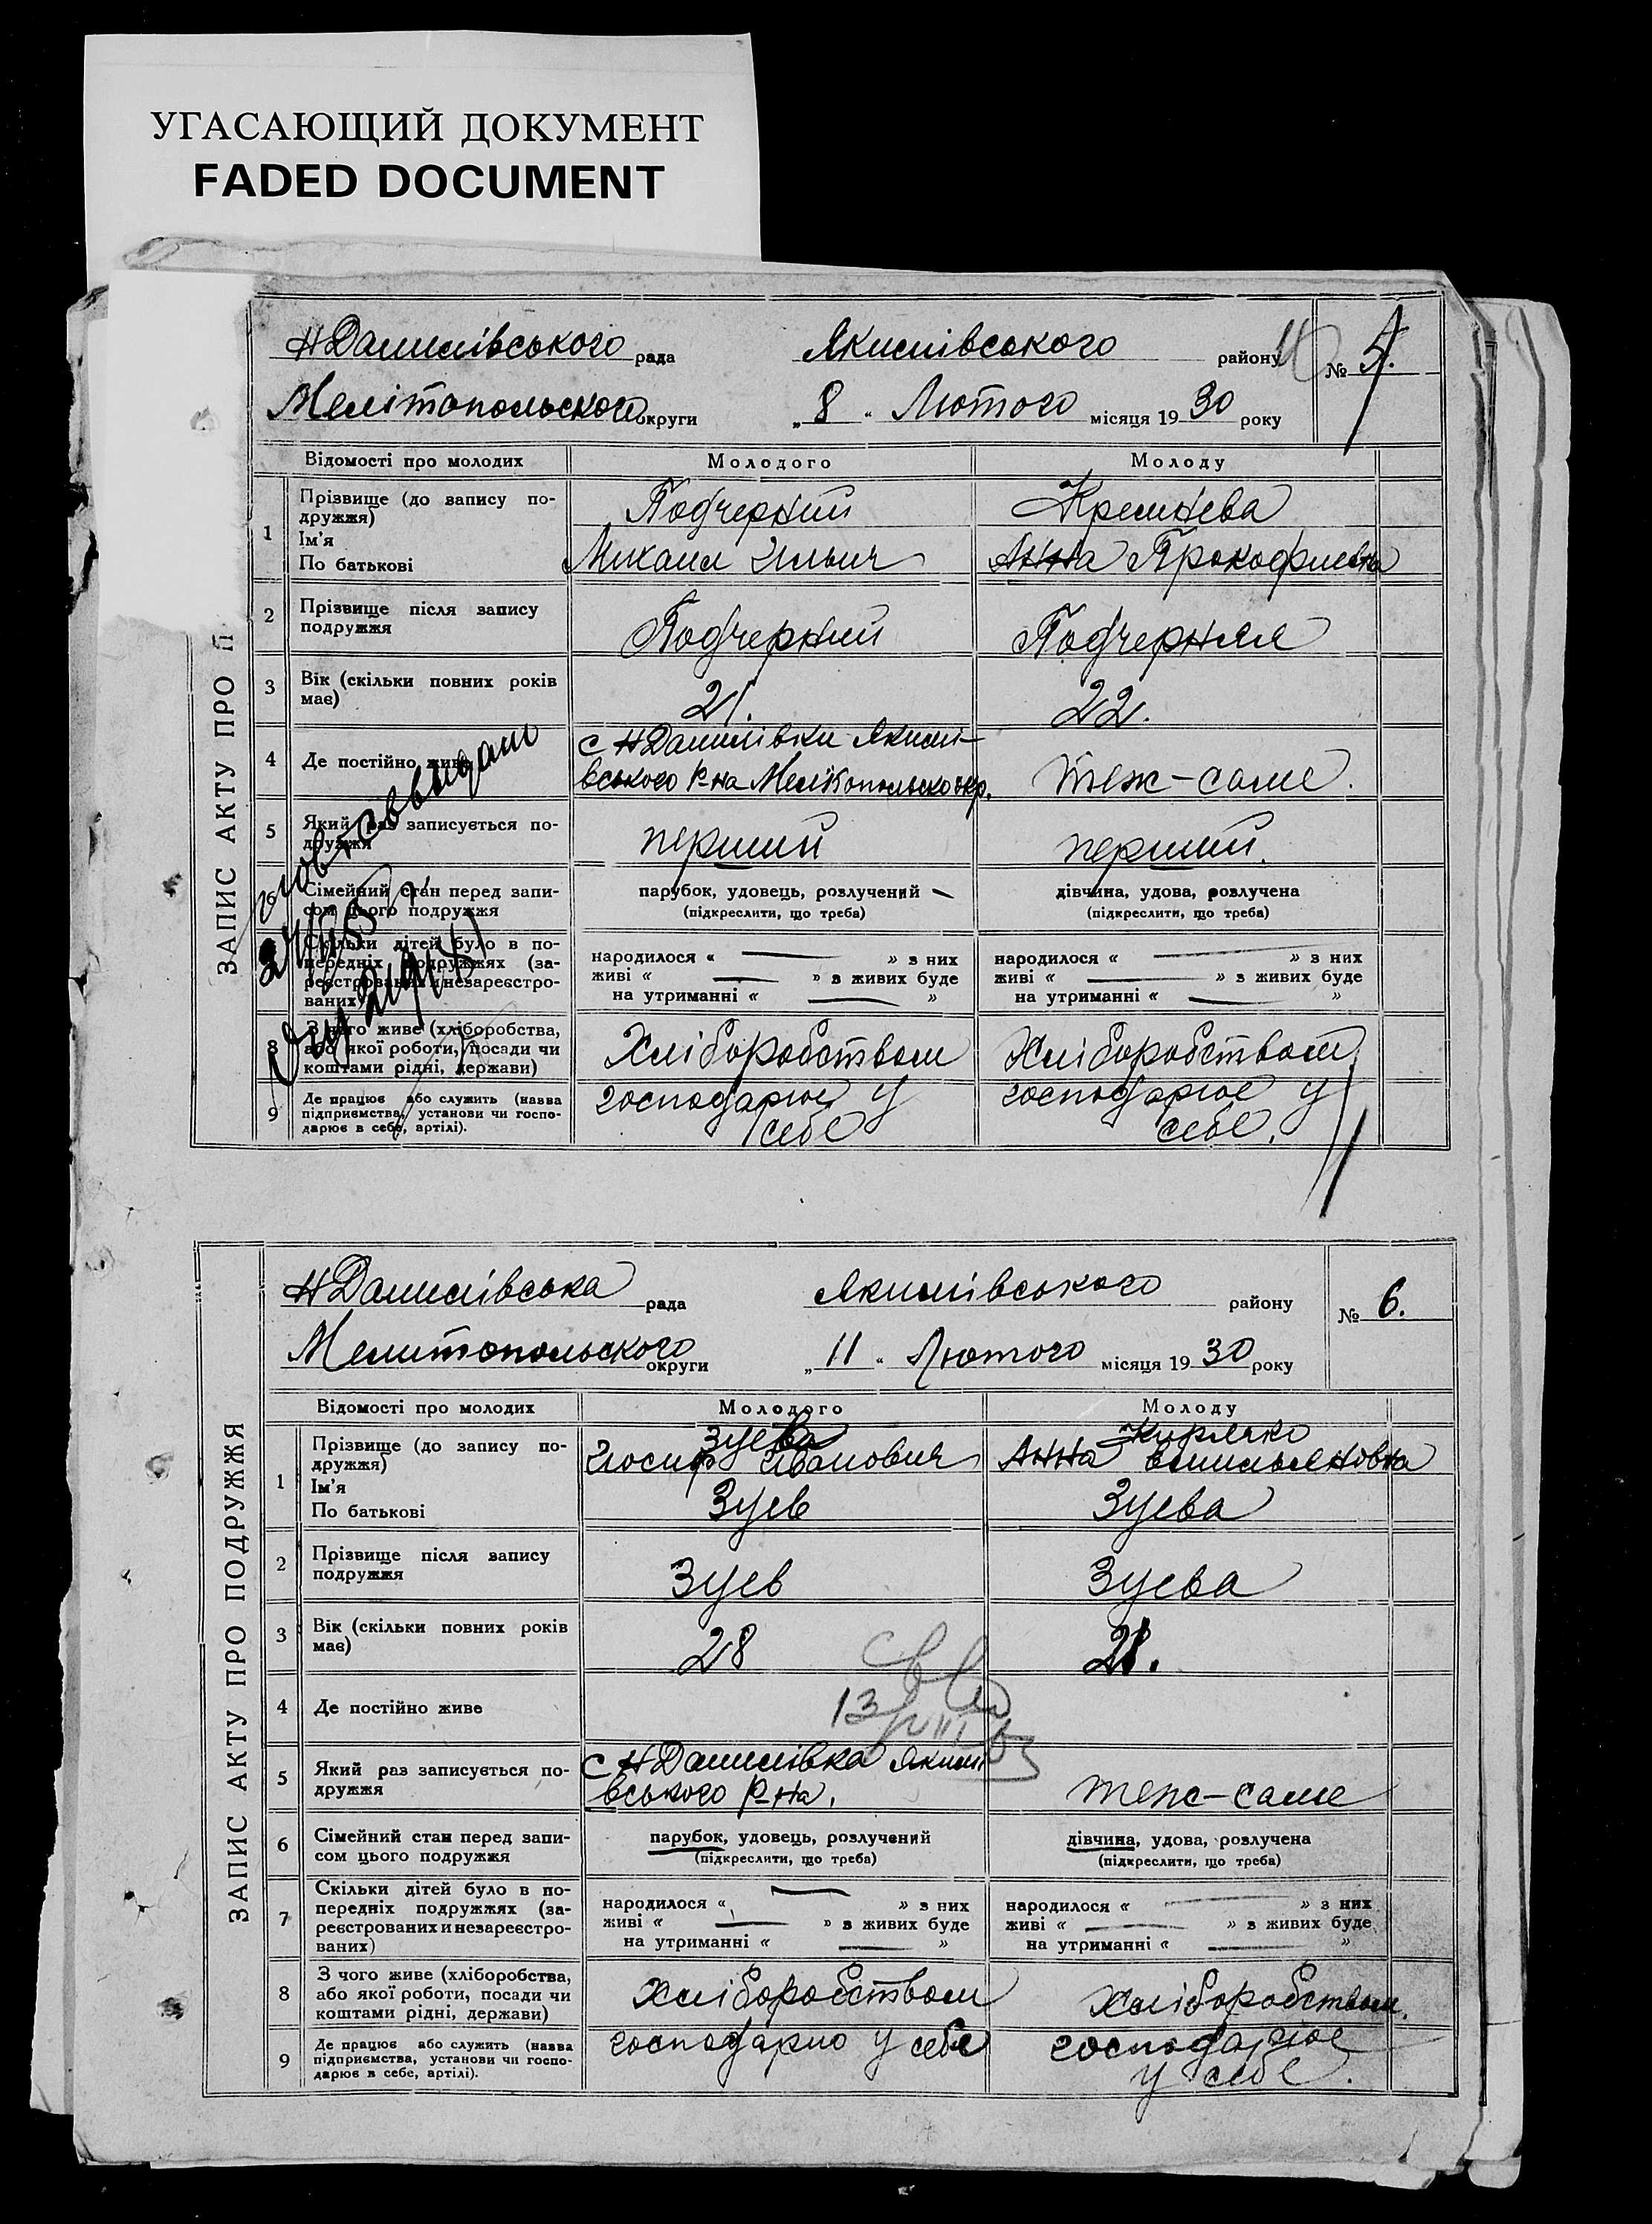 УГАСАЮЩИЙ ДОКУМЕНТ
FADED DOCUMENT
ЗАПИС АКТУ ПРО П
Н Данилівського рада Якимівського району № 5.
Мелітопольского округи „8“ Лютого місяця 1930 року
Відомості про молодих Молодого Молоду
1 Прізвище (до запису по-
дружжя)
Ім'я
По батькові
Подчерний Кремнева
Михаил Ильич Анна Прокофиевна
2 Прізвище після запису
подружжя
Подчерний Подчерняя
3 Вік (скільки повних років
має)
21. 22.
4 Де постійно живе
с Н Данилівки Якимі-
вського р-на Мелітопольско окр. теж-саме.
5 Який раз записується по-
дружжя
перший перший.
6 Сімейний стан перед запи-
сом цього подружжя
парубок, удовець, розлучений дівчина, удова, розлучена
(підкреслити, що треба) (підкреслити, що треба)
Скільки дітей було в по-
передніх подружжях (за-
реєстрованих и незареєстро-
ваних)
народилося « » з них народилося « » з них
живі « » з живих буде живі « » з живих буде
на утриманні « » на утриманні « »
8 З чого живе (хліборобства,
або якої роботи, посади чи
коштами рідні, держави)
Хліборобством Хліборобством
9 Де працює або служить (назва
підприємства, установи чи госпо-
дарює в себе, артілі).
господарює у господарює у
себе себе.
ЗАПИС АКТУ ПРО ПОДРУЖЖЯ
Н Данилівська рада Якимівського району № 6.
Мелитопольского округи „11“ Лютого місяця 1930 року
Відомості про молодих Молодого Молоду
1 Прізвище (до запису по-
дружжя)
Ім'я
По батькові
Зуева Кирляко
Иосиф Иванович Анна Емильяновна
Зуев Зуева
2 Прізвище після запису
подружжя
Зуев Зуева
3 Вік (скільки повних років
має)
28 21.
4 Де постійно живе
13
5 Який раз записується по-
дружжя
с Н Данилівка Якимі
вського р-на. теж-саме
6 Сімейний стан перед запи-
сом цього подружжя
парубок, удовець, розлучений дівчина, удова, розлучена
(підкреслити, що треба) (підкреслити, що треба)
7 Скільки дітей було в по-
передніх подружжях (за-
реєстрованих и незареєстро-
ваних)
народилося « » з них народилося « » з них
живі « » з живих буде живі « » з живих буде
на утриманні « » на утриманні « »
8 З чого живе (хліборобства,
або якої роботи, посади чи
коштами рідні, держави)
Хліборобством Хліборобством.
9 Де працює або служить (назва
підприємства, установи чи госпо-
дарює в себе, артілі).
господарио у себе господарює
у себе.